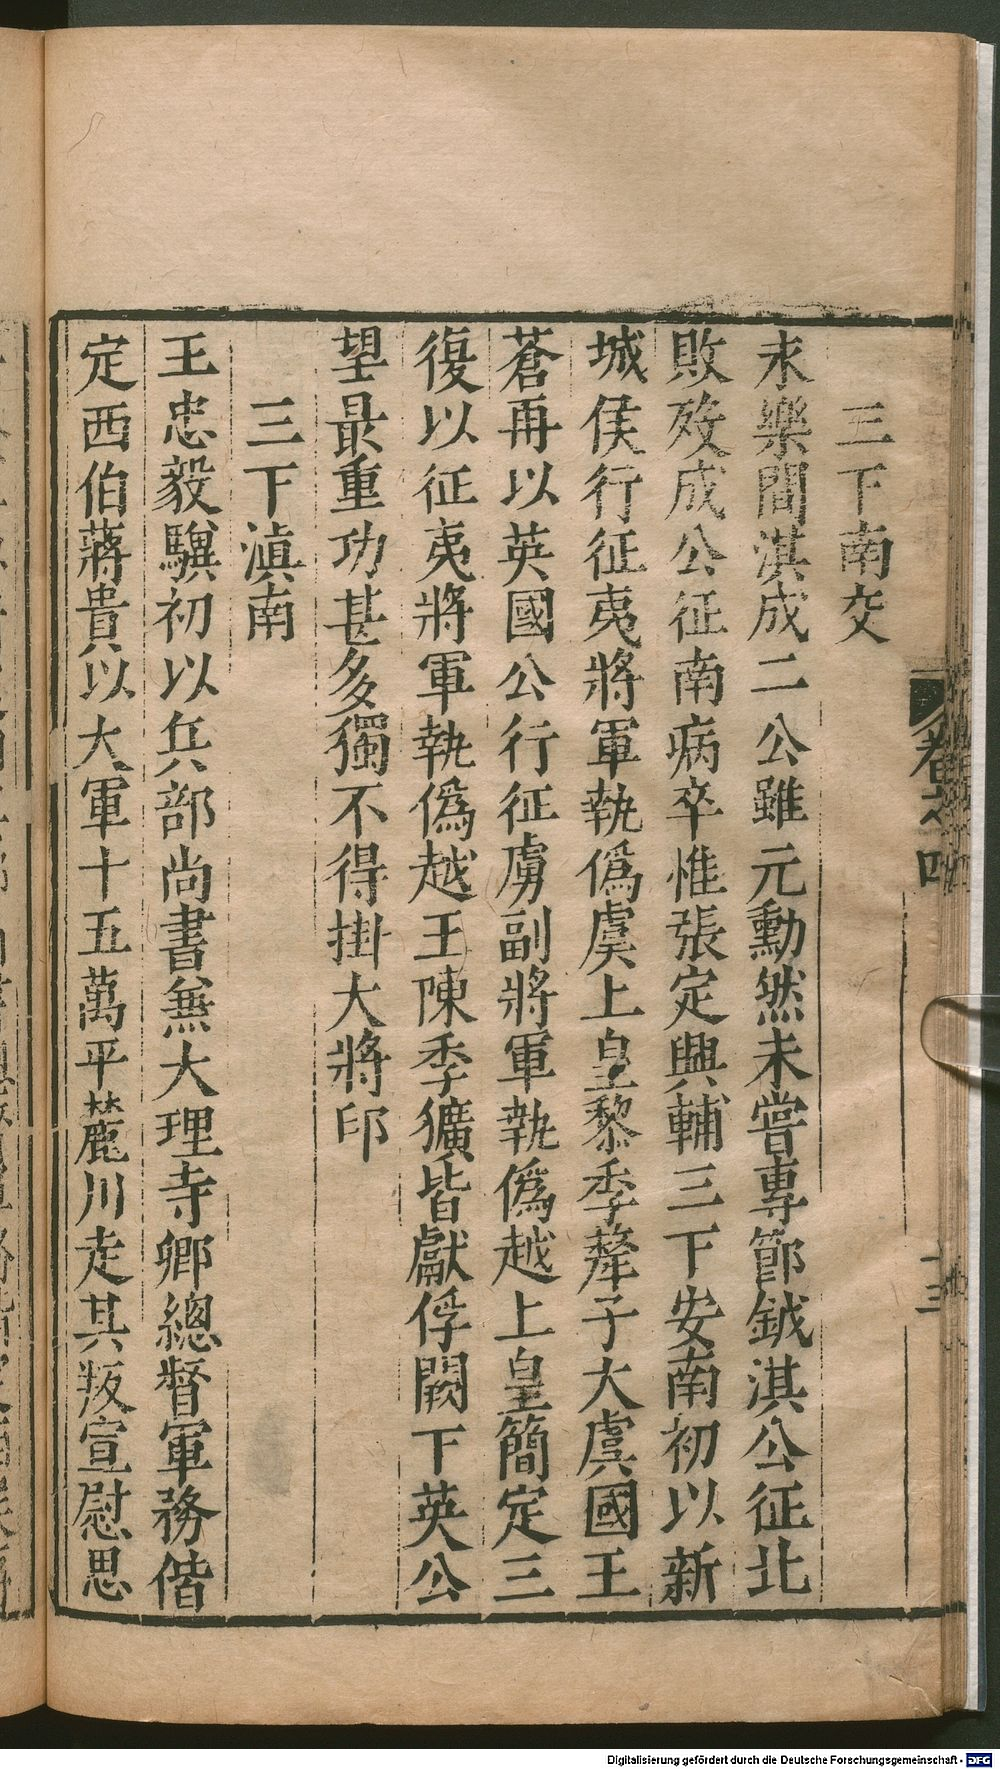 三下南交
永樂間淇成二公雖元勳然未嘗專節鉞淇公征北
敗歿成公征南病卒惟張定興輔三下安南初以新
城侯行征夷將軍執僞虞上皇黎季犛子大虞國王
蒼再以英國公行征虜副將軍執僞越上皇簡定三
復以征夷將軍執僞越王陳季獷皆獻俘闕下英公
望最重功甚多獨不得掛大將印
三下滇南
王忠毅驥初以兵部尚書兼大理寺卿總督軍務偕
定西伯蔣貴以大軍十五萬平麓川走其叛宣慰思
卷四
十三
Digitalisierung gefördert durch die Deutsche Forschungsgemeinschaft - DFG